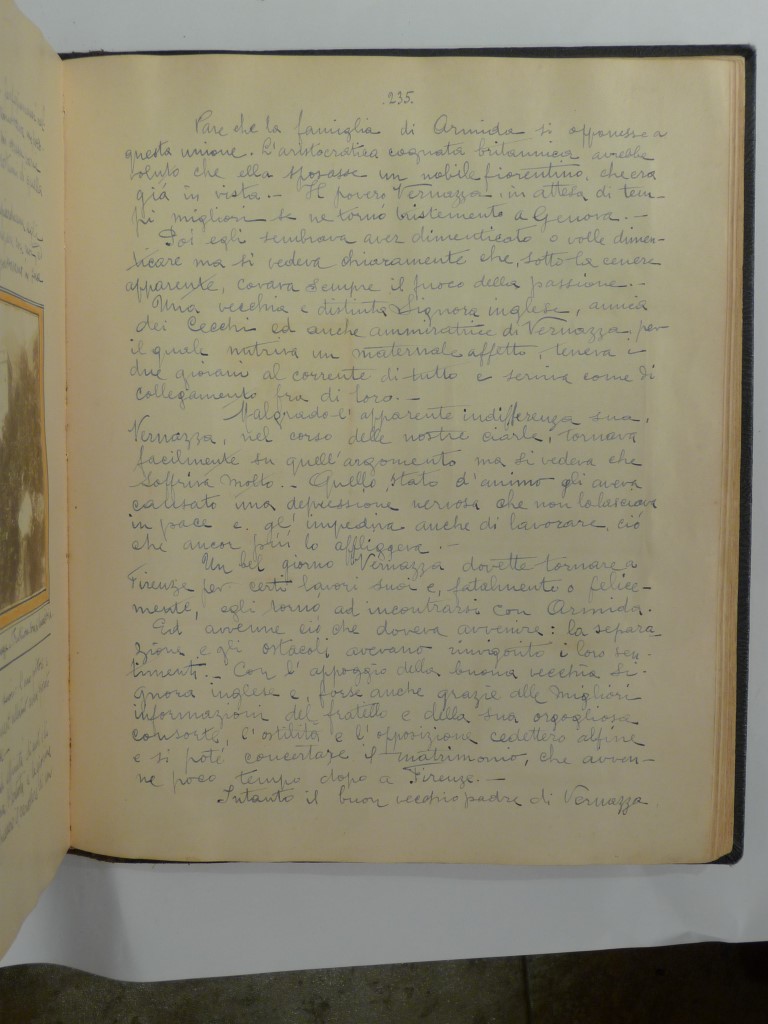 .235.
Pare che la famiglia di Armida si opponesse a
questa unione. L'aristocratica cognata britannica avrebbe
voluto che ella sposasse un nobile fiorentino, che era
già in vista. — Il povero Vernazza, in attesa di tem-
pi migliori se ne tornò tristemente a Genova. —
Poi egli sembrava aver dimenticato o volle dimen-
ticare ma si vedeva chiaramente che, sotto la cenere
apparente, covava sempre il fuoco della passione. —
Una vecchia e distinta Signora inglese, amica
dei Cecchi ed anche ammiratrice di Vernazza, per
il quale nutriva un maternale affetto, teneva i
due giovani al corrente di tutto e serviva come di
collegamento fra di loro. —
Malgrado l'apparente indifferenza sua,
Vernazza, nel corso delle nostre ciarle, tornava
facilmente su quell'argomento ma si vedeva che
soffriva molto. — Quello stato d'animo gli aveva
causato una depressione nervosa che non lo lasciava
in pace e gl'impediva anche di lavorare, ciò
che ancor più lo affliggeva. —
Un bel giorno Vernazza dovette tornare a
Firenze per certi lavori suoi e, fatalmente o felice-
mente, egli tornò ad incontrarsi con Armida.
Ed avvenne ciò che doveva avvenire: la separa-
zione e gli ostacoli avevano rinvigorito i loro sen-
timenti. — Con l'appoggio della buona vecchia Si-
gnora inglese e, forse anche grazie alle migliori
informazioni del fratello e della sua orgogliosa
consorte, l'ostilità e l'opposizione cedettero alfine
e si potè concertare il matrimonio, che avven-
ne poco tempo dopo a Firenze. —
Intanto il buon vecchio padre di Vernazza